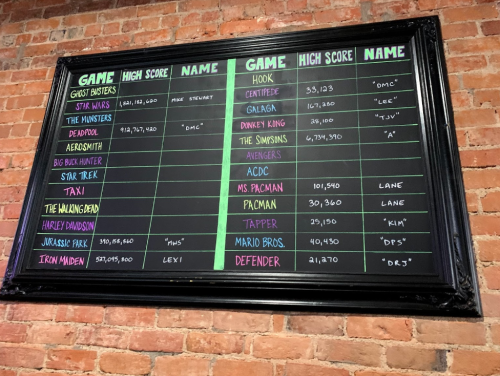 GAME HIGH SCORE NAME
GHOST BUSTERS
STAR WARS 1,821,182,620 MIKE STEWART
THE MUNSTERS
DEADPOOL 912,767,420 "DMC"
AEROSMITH
BIG BUCK HUNTER
STAR TREK
TAXI
THE WALKING DEAD
HARLEY DAVIDSON
JURASSIC PARK 390,158,660 "MNS"
IRON MAIDEN 527,095,800 LEXI
GAME HIGH SCORE NAME
HOOK
CENTIPEDE 33,123 "DMC"
GALAGA 167,280 "LEE"
DONKEY KONG 28,100 "TJV"
THE SIMPSONS 6,734,390 "A"
AVENGERS
ACDC
MS. PACMAN 101,540 LANE
PACMAN 30,360 LANE
TAPPER 25,150 "KIM"
MARIO BROS. 40,430 "DPS"
DEFENDER 21,270 "DRJ"